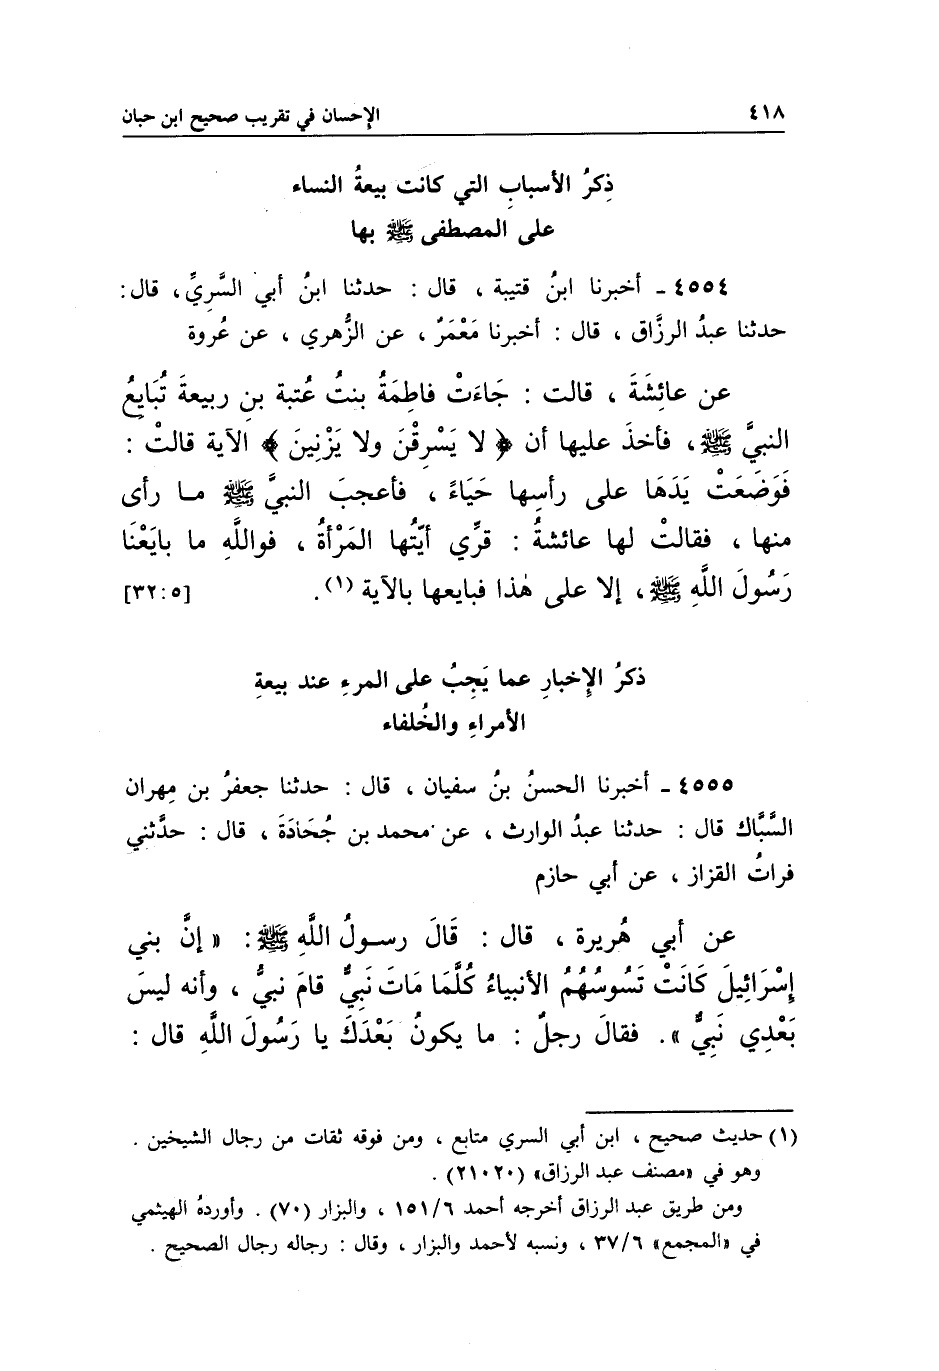 ٤١٨ الإحسان في تقريب صحيح ابن حبان
ذِكرُ الأسبابِ التي كانت بيعةُ النساء
على المصطفى ﷺ بها
٤٥٥٤ ـ أخبرنا ابنُ قتيبة ، قال : حدثنا ابنُ أبي السَّرِيِّ، قال:
حدثنا عبدُ الرزَّاق ، قال : أخبرنا مَعْمَرٌ ، عن الزُّهري ، عن عُروة
عن عائِشَةَ ، قالت : جَاءَتْ فاطِمَةُ بنتُ عُتبة بنِ ربيعةَ تُبَايِعُ
النبيَّ ﷺ، فأخذَ عليها أن ﴿ لا يَسْرِقْنَ ولا يَزْنِينَ ﴾ الآية قالتْ :
فَوَضَعَتْ يَدَهَا على رأسِها حَيَاءً ، فأعجبَ النبيَّ ﷺ مـا رأى
منها ، فقالتْ لها عائشةُ : قرِّي أيَّتُها المَرْأةُ ، فواللَّهِ ما بايَعْنَا
رَسُولَ اللَّهِ ﷺ، إلا على هٰذا فبايعها بالآية (١). [٣٢:٥]
ذكرُ الإِخبارِ عما يَجِبُ على المرءِ عند بيعةِ
الأمراءِ والخُلفاء
٤٥٥٥ ـ أخبرنا الحسنُ بنُ سفيان ، قال : حدثنا جعفرُ بن مِهران
السَّبَّاك قال : حدثنا عبدُ الوارث ، عن محمد بن جُحَادَةَ ، قال : حدَّثني
فراتُ القزاز ، عن أبي حازم
عن أبي هُريرة ، قال : قَالَ رسـولُ اللَّهِ ﷺ: « إنَّ بني
إِسْرَائِيلَ كَانَتْ تَسُوسُهُمُ الأنبياءُ كُلَّمَا مَاتَ نَبِيٌّ قامَ نبيٌّ ، وأنه ليسَ
بَعْدِي نَبِيٌّ ». فقالَ رجلٌ : ما يكونُ بَعْدَكَ يا رَسُولَ اللَّهِ قال :
(١) حديث صحيح ، ابن أبي السري متابع ، ومن فوقه ثقات من رجال الشيخين .
وهو في «مصنف عبد الرزاق» (٢١٠٢٠) .
ومن طريق عبد الرزاق أخرجه أحمد ١٥١/٦ ، والبزار (٧٠) . وأوردهُ الهيثمي
في «المجمع» ٣٧/٦ ، ونسبه لأحمد والبزار ، وقال : رجاله رجال الصحيح .